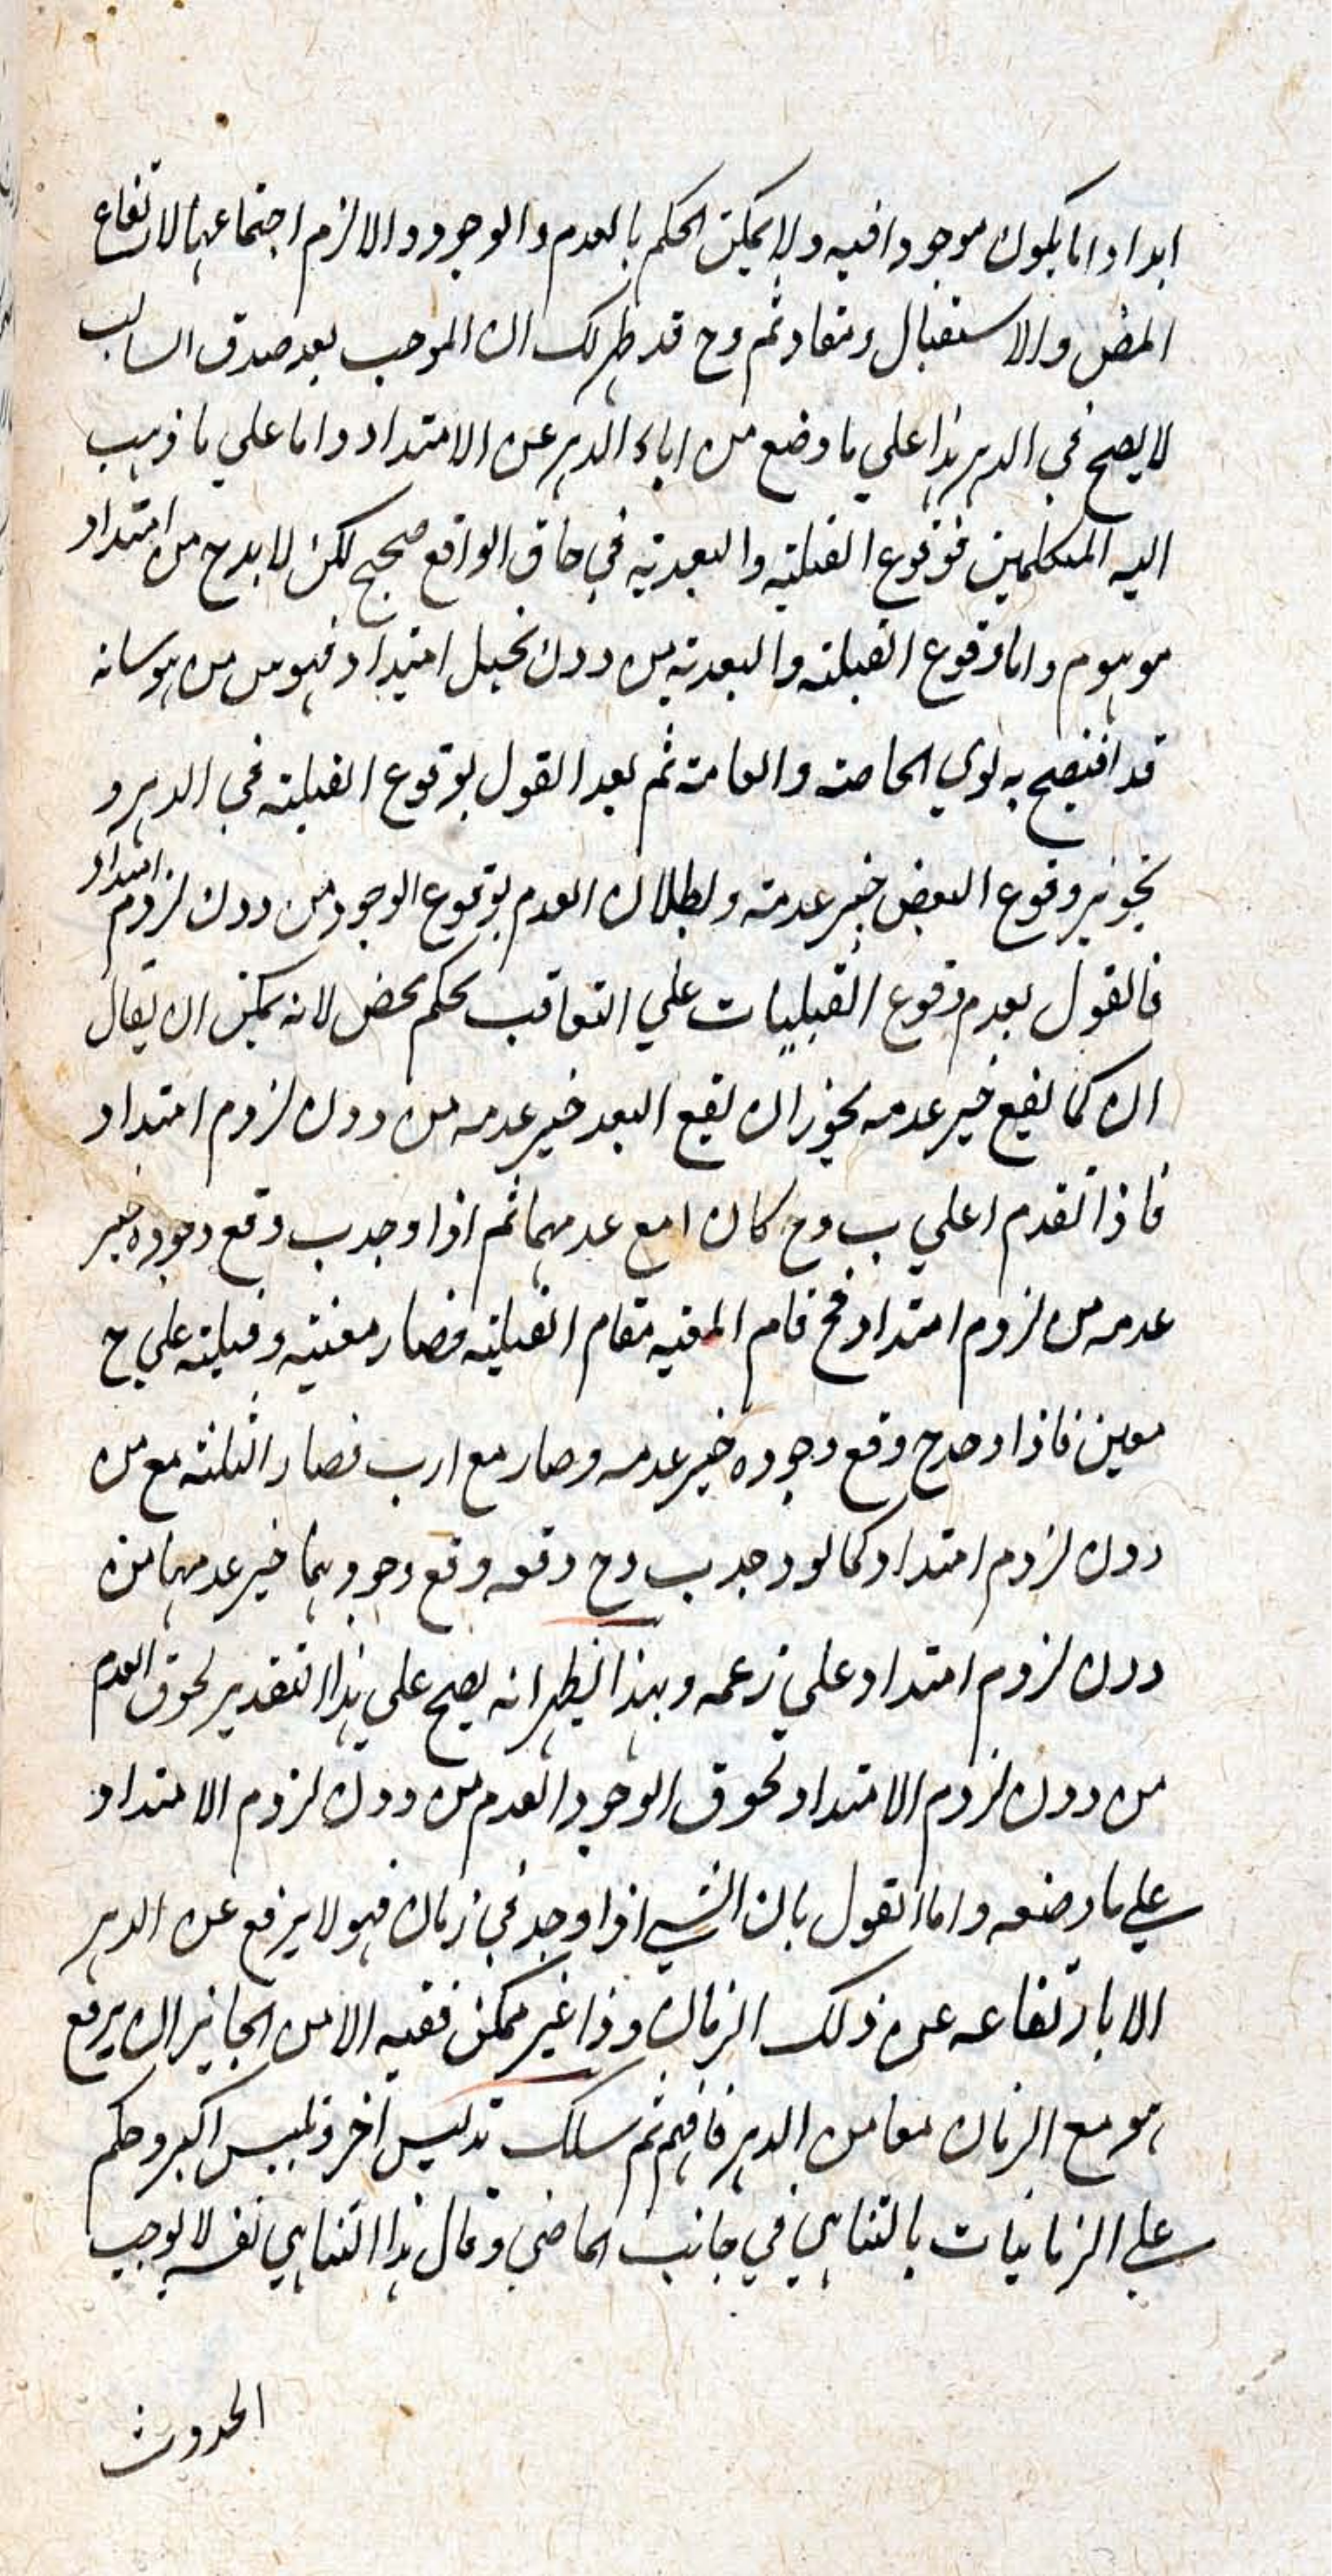 ابدا واما يكون موجودا فيه ولا يمكن الحكم بالعدم والوجود والا لزم اجتماعهما لارتفاع
المضى والاستقبال ثم وح قد ظهر لك ان الموجب بعد صدق السالب
لا يصح في الدهر هذا علي ما وضع من اباء الدهر عن الامتداد واما علي ما ذهب
اليه المتكلمين فوقوع القبلية والبعدية في حاق الواقع صحيح لكن لا بد ح من امتداد
موهوم واما وقوع القبلية والبعدية من دون تخيل امتداد فهوس من هوسانه
قد افتضح به لدي الخاصة والعامة ثم بعد القول بوقوع القبلية في الدهر و
تجويز وقوع البعض خير عدمه وبطلان العدم بوقوع الوجود من دون لزوم امتداد
فالقول بعدم وقوع القبليات علي التعاقب تحكم محض لانه يمكن ان يقال
ان كما يقع خير عدمه يجوز ان يقع البعد خير عدمه من دون لزوم امتداد
فاذا تقدم ا علي ب وح كان ا مع عدمهما ثم اذا وجد ب وقع وجوده خير
عدمه من لزوم امتداد فح قام المعية مقام القبلية فصار معية وقبلية علي ح
معين فاذا وجد ح وقع وجوده خير عدمه وصار مع ا و ب فصار الثلثة مع من
دون لزوم امتداد كما لو وجد ب وح دفعه وقع وجودهما خير عدمهما من
دون لزوم امتداد علي زعمه وبهذا يظهر انه يصح علي هذا التقدير لحوق العدم
من دون لزوم الامتداد لحوق الوجود العدم من دون لزوم الامتداد
علي ما وضعه واما القول بان الشي اذا وجد في زمان فهو لا يرفع عن الدهر
الا بارتفاعه عن ذلك الزمان وذا غير ممكن ففيه الا من الجايز ان يرفع
هو مع الزمان معا من الدهر فافهم ثم سلك تدليس اخر وتلبيس اكبر وحكم
علي الزمانيات بالتناهي في جانب الماضي وقال هذا التناهي نفسه لا يوجب
الحدوث